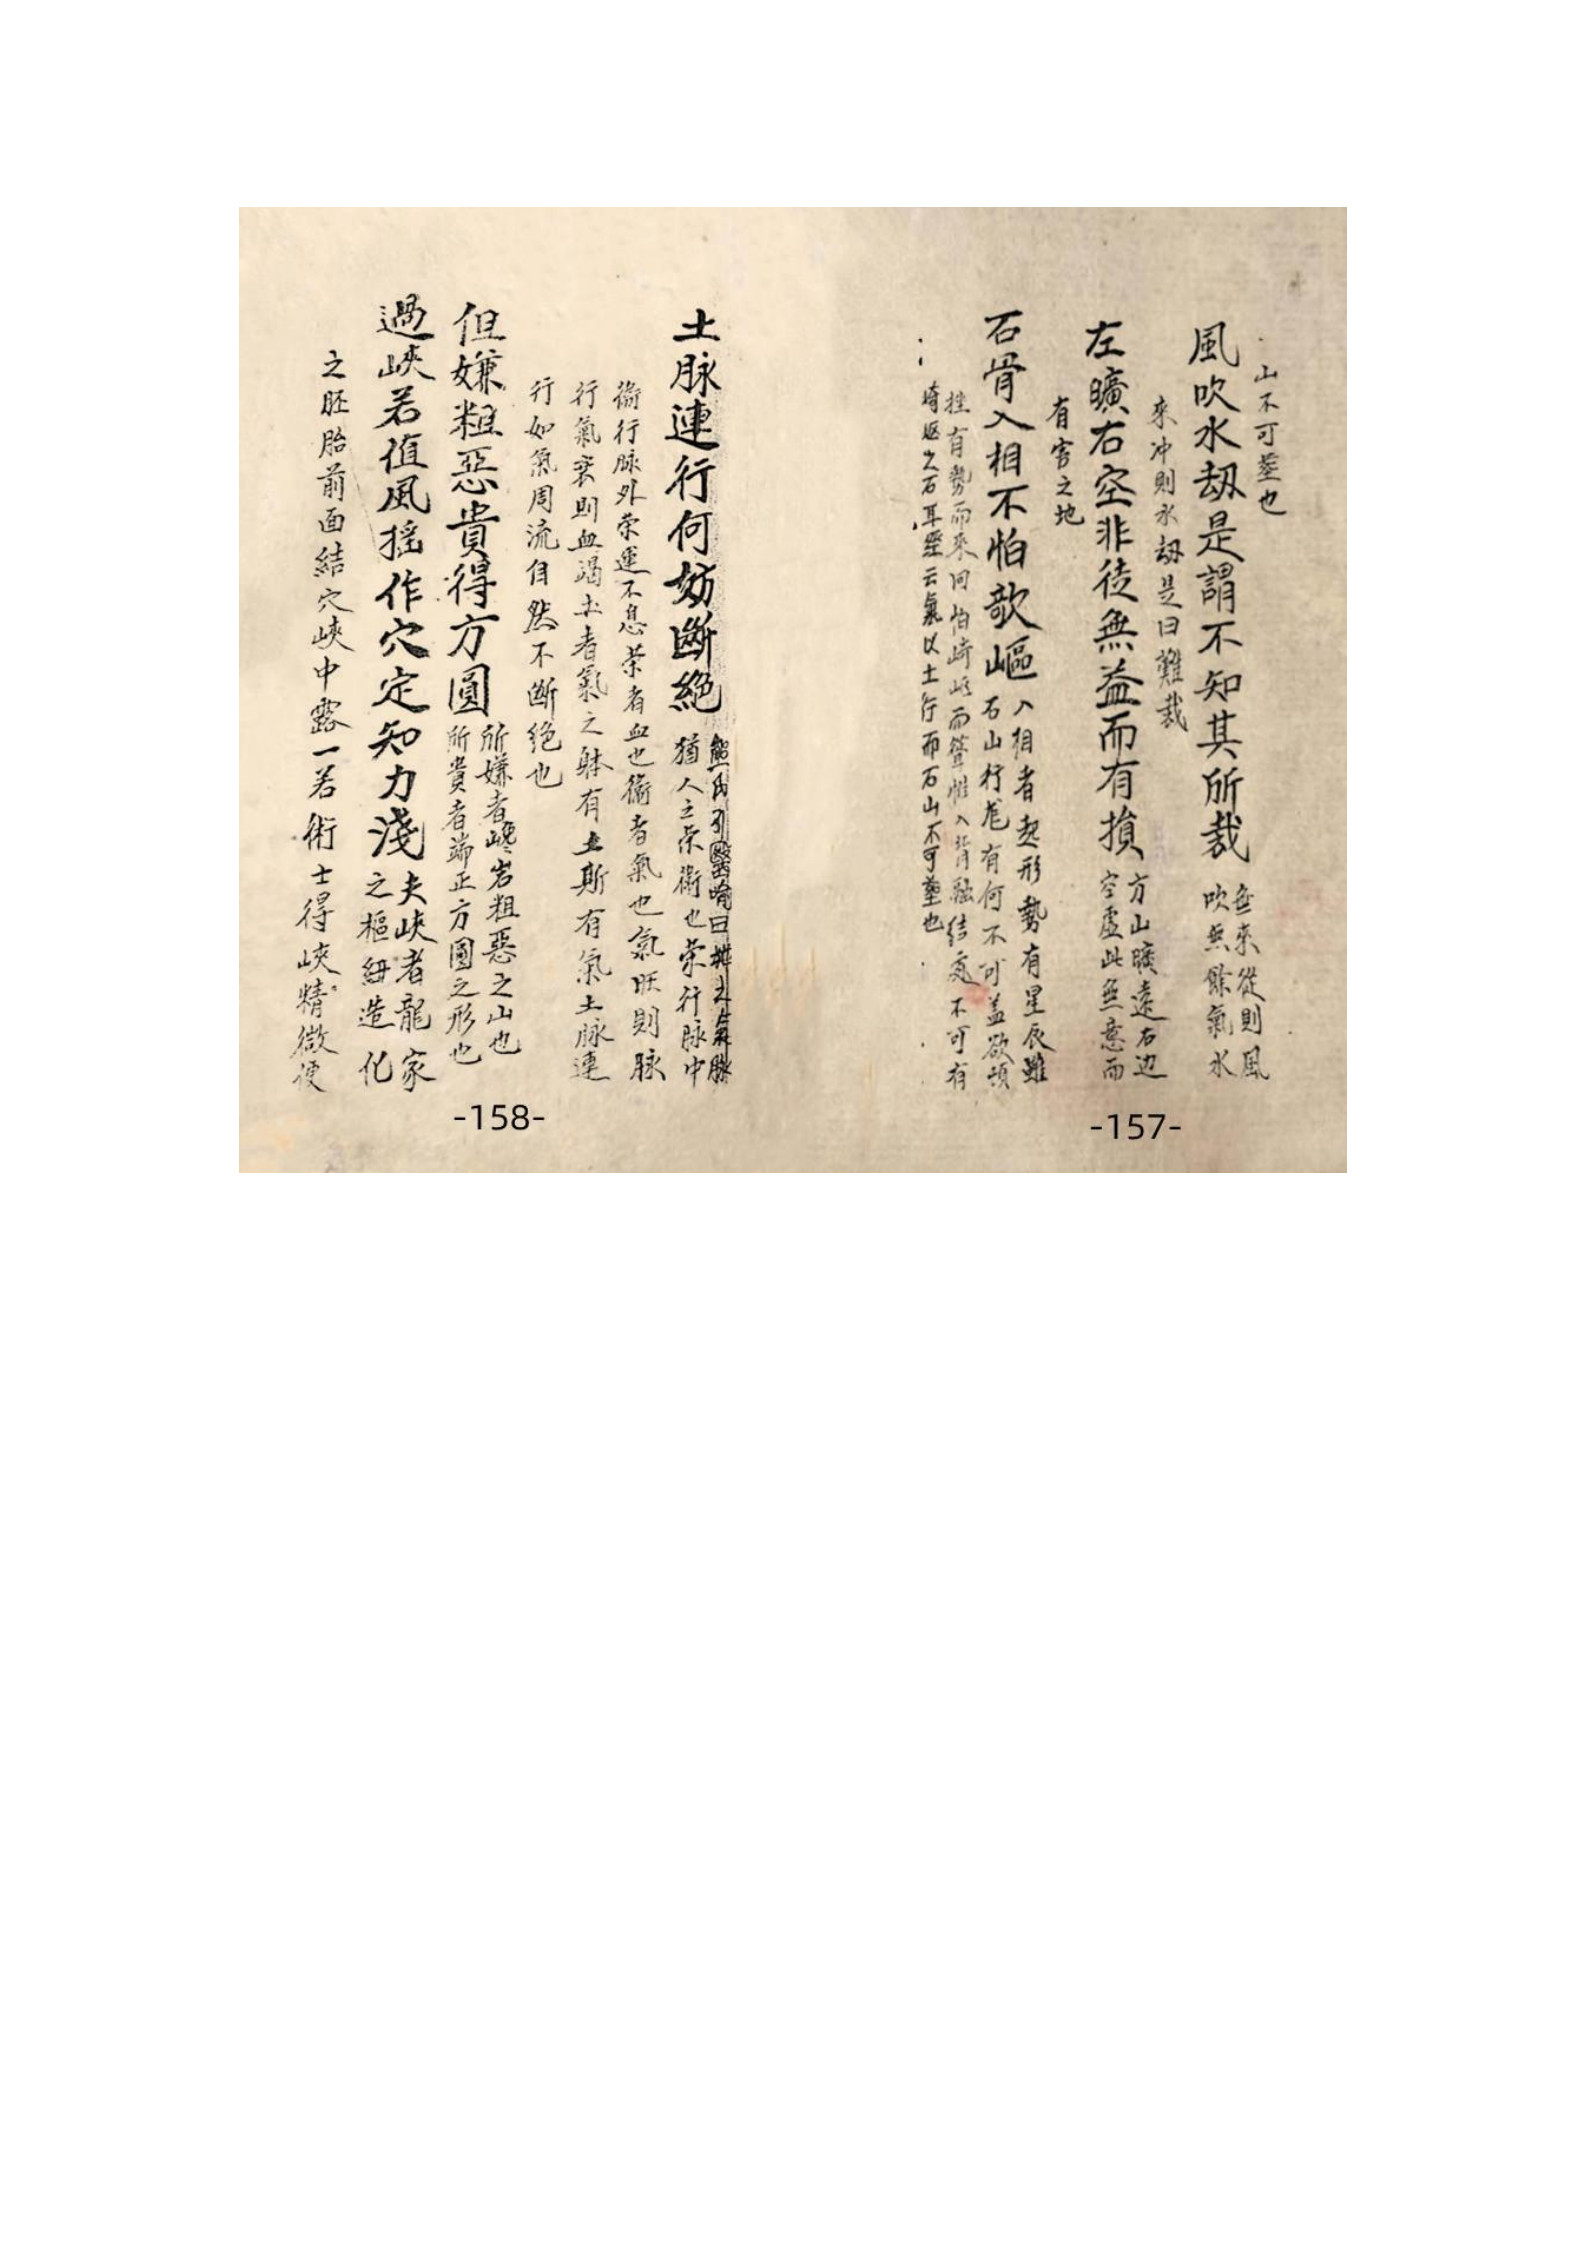 山不可塟也
風吹水刼是謂不知其所裁
無來從則風
吹無餘氣水
來冲則水刼是曰難裁
左曠右空非徒無益而有損
方山曠遠右边
空虛此無意而
有害之地
石骨入相不怕歆嶇
入相者起形勢有星辰雖
石山行龙有何不可盖欲頑
挫有勢而來何怕崎岖而聳惟入首融结處不可有
崎岖之石耳經云氣以土行而石山不可塟也
-157-
土脉連行何妨斷絕
熊氏引醫喻曰 脉
猶人之荣衛也荣行脉中
衛行脉外荣運不息荣者血也衛者氣也氣旺則脉
行氣衰則血竭土者氣之躰有土斯有氣土脉連
行如氣周流自然不断绝也
但嫌粗惡貴得方圓
所嫌者巉岩粗惡之山也
所貴者端正方圓之形也
過峽若值風摇作穴定知力淺
夫峽者龍家
之樞紐造化
之胚胎前面結穴峽中露一若術士得峽精微便
-158-